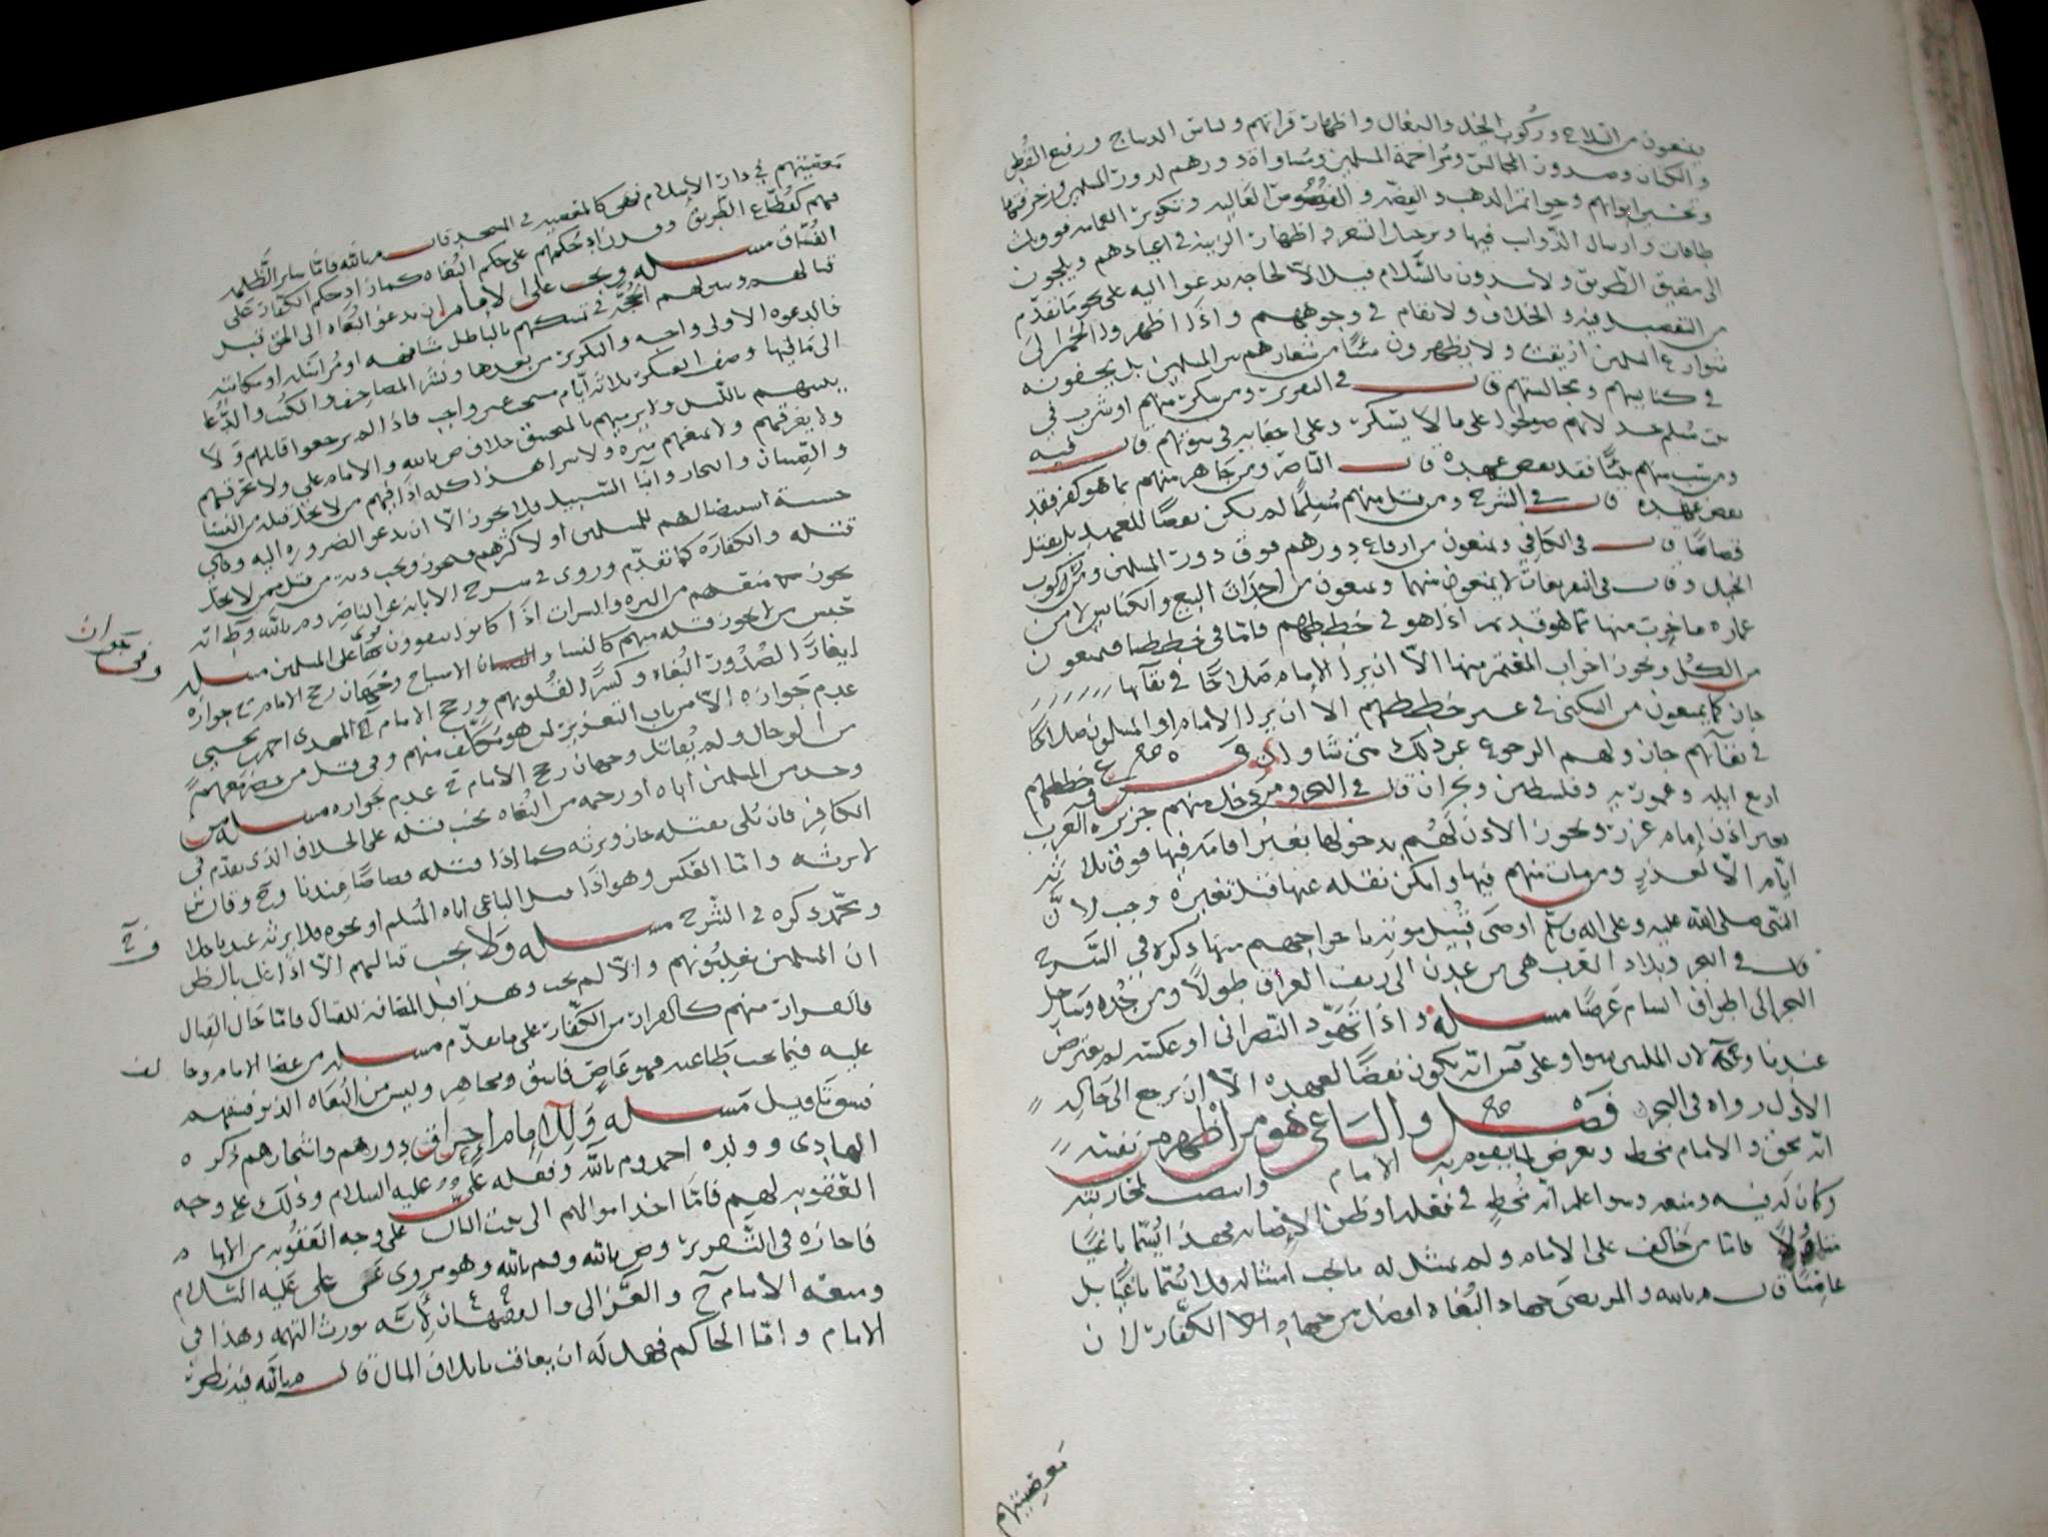 ويمنعون من السلاح وركوب الخيل والبغال واظهار قراتهم ولباس الديباج ورفيع القطن
والكتان وصدور المجالس ومزاحمة المسلمين ومساواة دورهم لدور المسلمين
وابوابهم وخواتم الذهب والفضه والفصوص الغاليه وتكوير العمامه فوق ثلاث
طاقات وارسال الذواب فيها وترجيل الشعر واظهار الزينه في اعيادهم ويلجون
الى مضيق الطريق ولا يبدون بالسلام قبلا الا لحاجه يدعوا اليه على نحو ما تقدم
من التفصيل فيه والخلاف ولا يقام في وجوههم واذا اظهروا الخمر الى
شوارع المسلمين اريقت ولا يظهرون شيئا من شعارهم بين المسلمين بل يخفونه
في كنايسهم ومجالسهم قال في التقرير ومن سكر منهم او شرب في
بيت مسلم حد لانهم صولحوا على ما لا يسكر وعلى اخفايه في بيوتهم قال فيه
ومن سب منهم نبيا فقد نقض عهده قال الناصر ومن جاهر منهم بما هو كفر فقد
نقض عهده قال في الشرح ومن قتل منهم مسلما لم يكن نقضا للعهد بل يقتل
قصاصا قال في الكافي ويمنعون من ارفاع دورهم فوق دور المسلمين ومن ركوب
الخيل وقال في التفريعات لا يمنعون منها ويمنعون من احداث البيع والكنايس لا من
عماره ما خرب منها مما هو قديم اذا هو في خططهم فاما في خططنا فيمنعون
من الكل ويجوز اخراب المعتمر منها الا ان يرا الامام صلاحا في بقآها
جاز كما يمنعون من السكنى في غير خططهم الا ان يرا الامام او المسلمون صلاحا
في بقآهم جاز ولهم الرجوع عن ذلك متى شاوا فرع خططهم
اربع ايله وعموريه وفلسطين ونجران قال في البحر ومن دخل منهم جزيره العرب
بغير اذن امام عزر ويجوز الاذن لهم بدخولها بغير اقامه فيها فوق ثلاثه
ايام الا لعذر ومن مات منهم فيها وامكن نقله عنها قبل تغيره وجب لان
النبي صلى الله عليه وعلى اله وسلم اوصى قبيل موته باخراجهم منها ذكره في الشرح
قال في البحر وبلاد العرب هي من عدن الى ريف العراق طولا ومن جده وساحل
البحر الى اطراف الشام عرضا مسله واذا تهود النصراني او عكسه لم يعترض
عندنا وح لان الملتين سوا وعلى قش انه يكون نقضا لعهده الا ان يرجع الى حاله
الاول رواه في البحر فصل والباغي هو من اظهر من نفسه
انه محق والامام مخط وتعرض لما يقوم به الامام وانتصب لمحاربته
وكان له فيه ومنعه وسوا علم انه مخطي في فعله او ظن الاصابه فهذا يسما باغيا
متاولا فاما من خالف على الامام ولم يمتثل له ما يجب امتثاله فلا يسما باغيا بل
عاصيا قال م بالله والمرتضى جهاد البغاه افضل من جهاد الكفار لان
معصيتهم
معصيتهم في دار الاسلام فهي كالمعصيه في المسجد قال م بالله فاما ساير الظلمه
فهم كقطاع الطريق وقد زاد حكمهم على حكم البغاه كما زاد حكم الكفار على
الفساق مسله ويجب على الامام ان يدعو البغاه الى الحق قبل
قتالهم ويبين لهم الحجه في تمسكهم بالباطل مشافهه او مراسله او مكاتبه
فالدعوه الاولى واجبه والتكرير من بعدها ونشر المصاحف والكتب والدعا
الى ما فيها وصف العسكر ثلاثه ايام مستحب غير واجب فاذا لم يرجعوا قاتلهم ولا
يبيتهم بالليل ولا يرميهم بالمنجنيق خلاف ص بالله والامام علي ولا يحرقهم
ولا يغرقهم ولا يمنعهم ميره ولا شرابا هذا كله اذا فيهم من لا يحل قتله من النسا
والصبيان والتجار وابنا السبيل فلا يجوز الا ان يدعو الضروره اليه وهي
خشية استيصالهم للمسلمين او لاكثرهم فيجوز ويجب ديه من قتل ممن لا يحل
قتله والكفاره كما تقدم وروى في شرح الابانه عن الناصر وم بالله وط انه
يجوز منعهم من الميره والشراب اذا كانوا يتقوون بها على المسلمين مسله
وفي جواز
حبس من لا يجوز قتله منهم كالنسا والصبيان الاسباح وجهان رجح الامام ي جوازه
ايغارا لصدور البغاه وكسرا لقلوبهم ورجح الامام المهدي احمد بن يحيى
عدم جوازه الا من باب التعزير لمن هو مكلف منهم وفي قتل من حضر معهم
من الرجال ولم يقاتل وجهان رجح الامام ي عدم جوازه مسله من
وجد من المسلمين اباه او رحمه من البغاه تجنب قتله على الخلاف الذي تقدم في
الكافر فان بلي بقتله جاز ويرثه كما اذا قتله قصاصا عندنا وح وقال ش
لا يرثه واما العكس وهو اذا قتل الباغي اباه المسلم او نحوه فلا يرثه عندنا خلافا
وح
ومحمد ذكره في الشرح مسله ولا يجب قتالهم الا اذا غلب بالظن
ان المسلمين يغلبونهم والا لم يجب وهذا قبل المصافه للقتال فاما حال القتال
فالفرار منهم كالفرار من الكفار على ما تقدم مسله من عصا الامام وخالف
عليه فيما يجب طاعته فهو عاص فاسق ومجاهر وليس من البغاه الذين فسقهم
فسق تاويل مسله وللامام اخراب دورهم واشجارهم ذكره
الهادي وولده احمد وم بالله وفعله علي عليه السلام وذلك على وجه
العقوبه لهم فاما اخذ اموالهم الى بيت المال على وجه العقوبه من الامام
فاجازه في التحرير وص بالله وم بالله وهو مروي عن علي عليه السلام
ومنعه الامام ح والغزالي والفقيهان لانه يورث التهمه وهذا في
الامام واما الحاكم فهل له ان يعاقب باتلاف المال قال م بالله فيه نظر